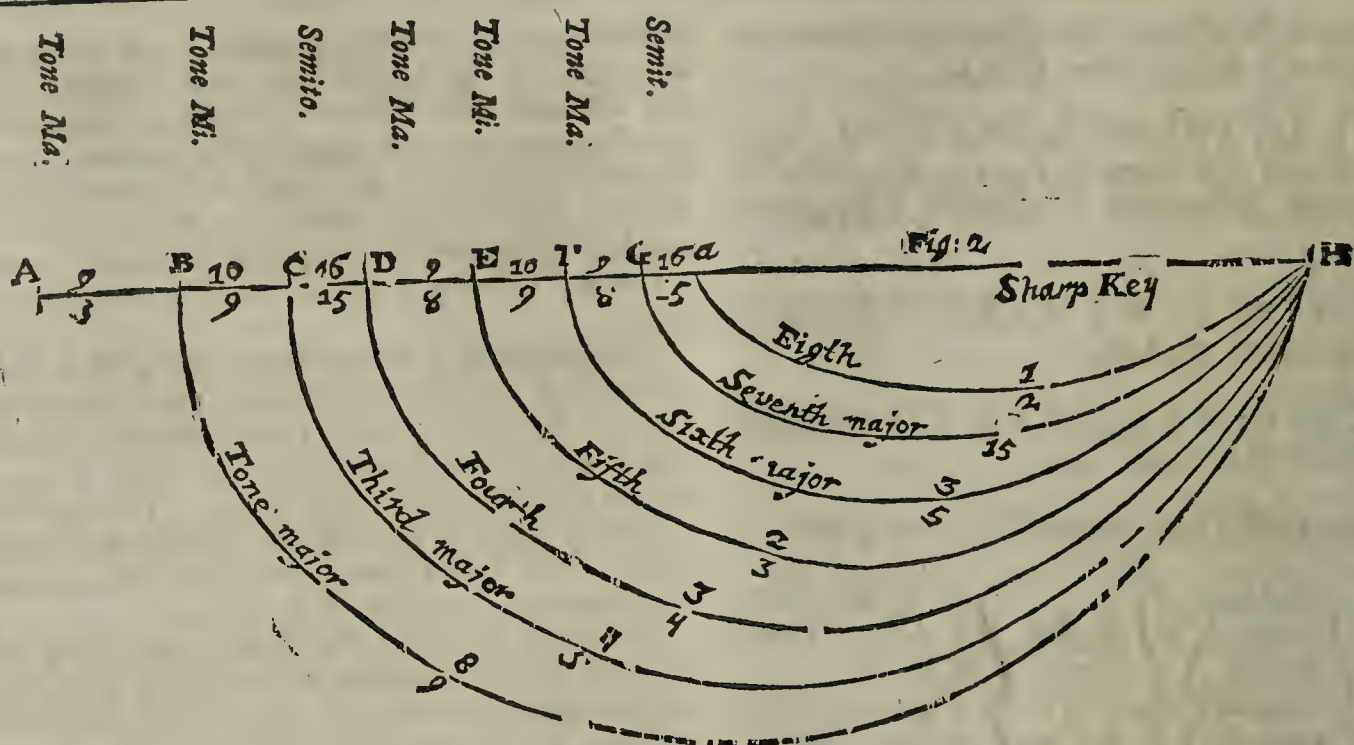 Tone Ma.
Tone Mi.
Semito.
Tone Ma.
Tone Mi.
Tone Ma.
Semit.
A 9 B 10 C 16 D 9 E 10 F 9 G 16 a Fig: 2 H
3 9 15 8 9 8 5 Sharp Key
Eigth 1
2
Seventh major
15
Sixth major 3
5
Fifth 2
3
Fourth 3
4
Third major 4
5
Tone major 8
9